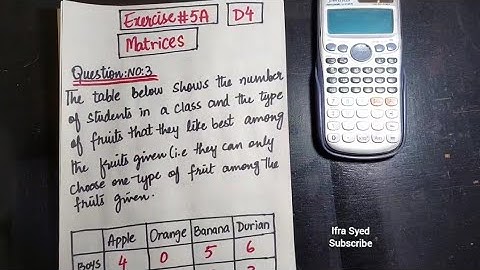 Exercise#5A
D4
Matrices
Question:NO:3
The table below shows the number
of students in a class and the type
of fruits that they like best among
the fruits given (i.e they can only
choose one type of fruit among the
fruits given.
Apple Orange Banana Durian
Boys 4 0 5 6
Ifra Syed
Subscribe